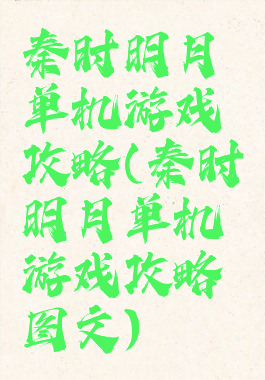 秦时明月
单机游戏
攻略(秦时
明月单机
游戏攻略
图文)